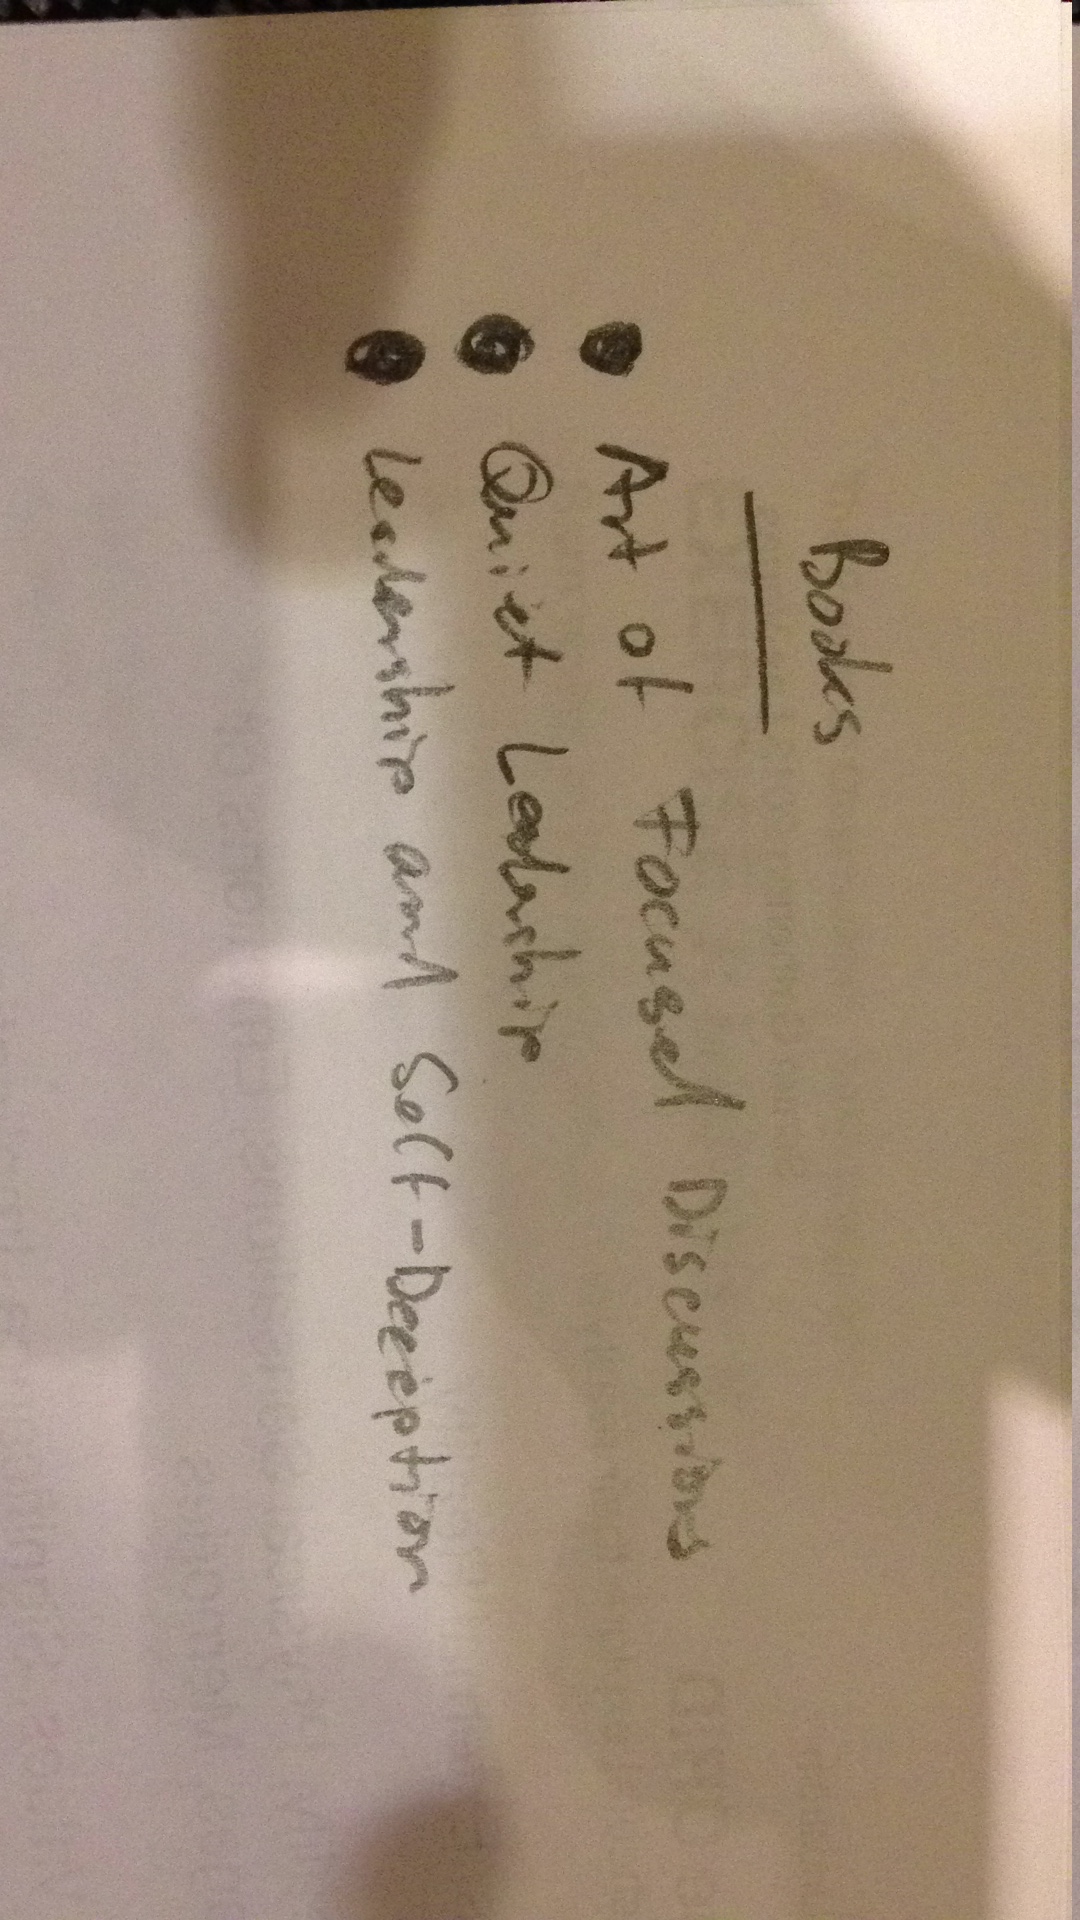 Books
• Art of Focused Discussions
• Quiet Leadership
• Leadership and Self-Deception